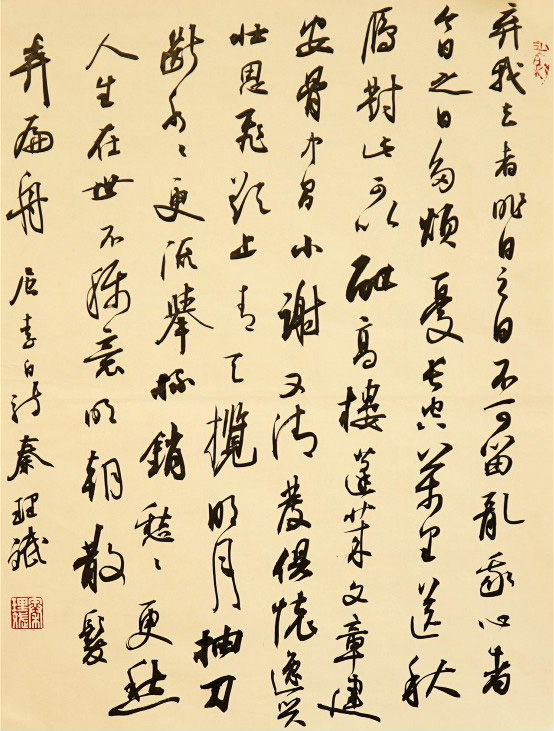 弃我去者昨日之日不可留亂我心者
今日之日多煩憂長空萬里送秋
雁對此可以酣高樓蓬萊文章建
安骨中間小謝又清發俱懷逸興
壯思飛欲上青天攬明月抽刀
斷水〻更流舉杯銷愁〻更愁
人生在世不稱意明朝散髮
弄扁舟 唐李白詩 秦理斌